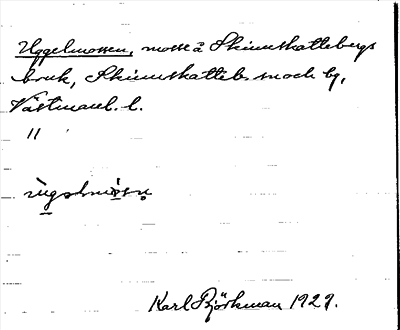 Uggelmossen, mosse å Skinnskattebergs
bruk, Skinnskatteb. sn och bg,
Västmanl. l.
"
ùgəlmòsn̥
Karl Björkman 1929.